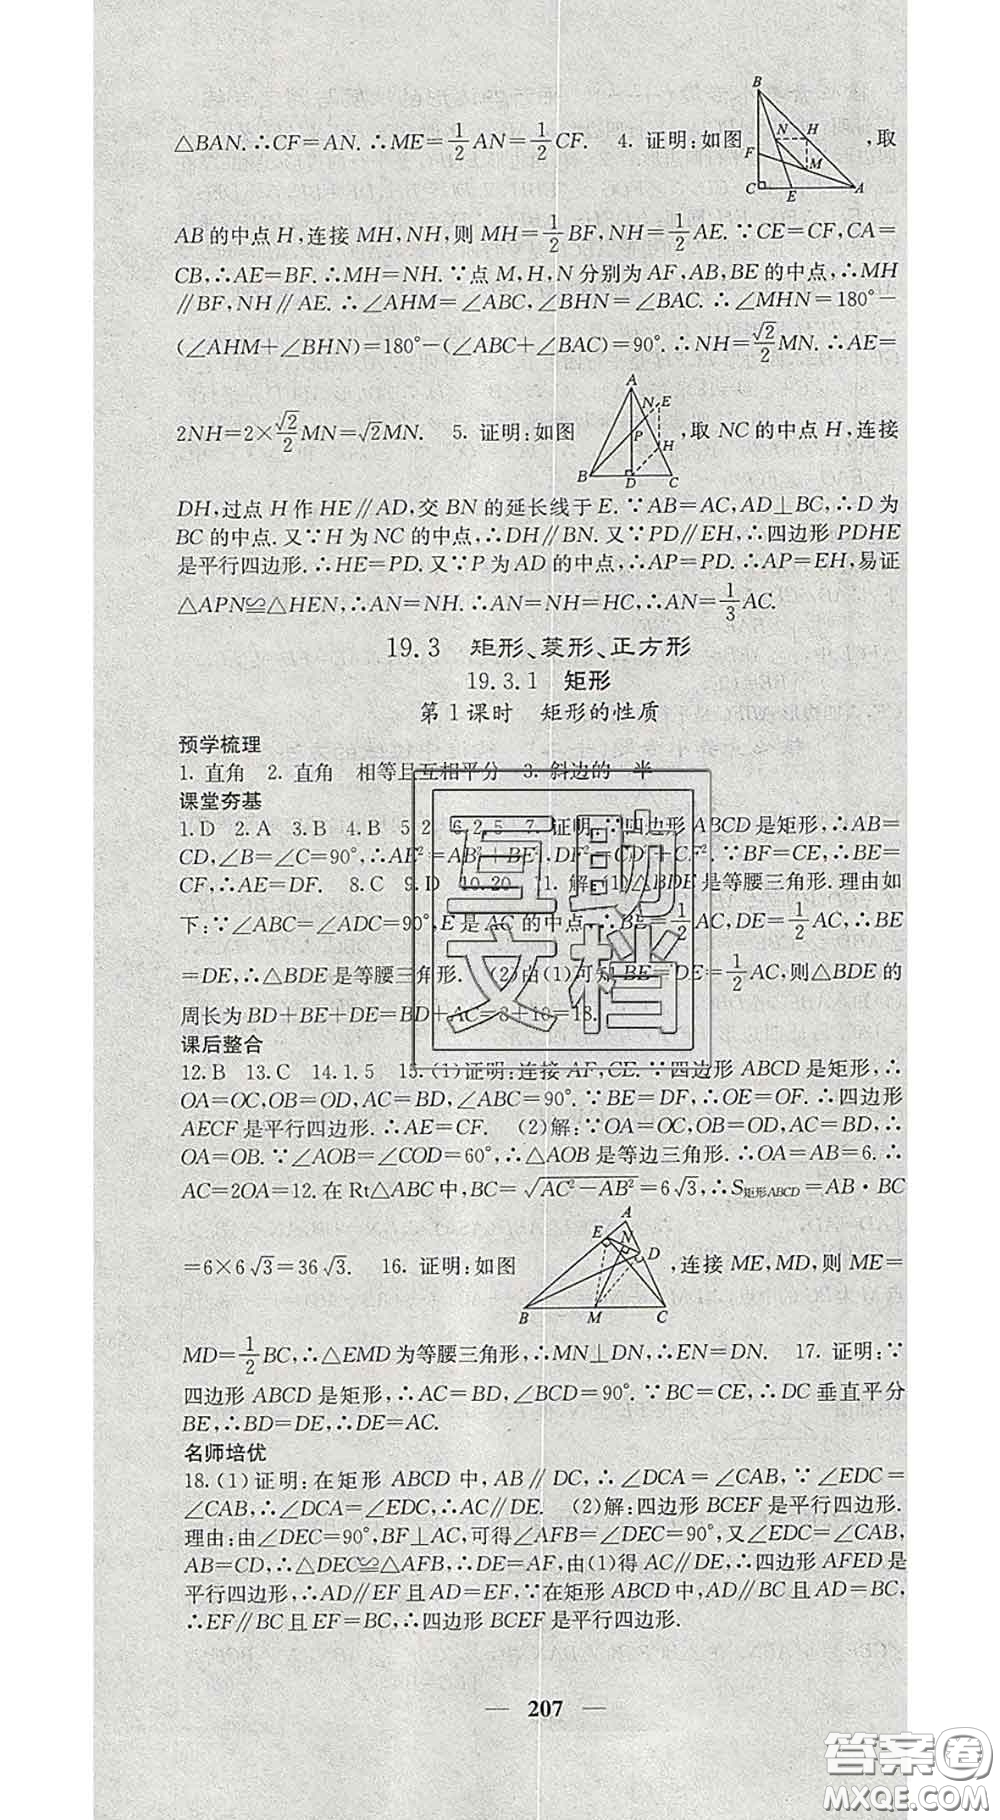 △BAN.∴CF=AN.∴ME=1/2AN=1/2CF. 4. 证明:如图 ,取
AB的中点H,连接MH,NH,则MH=1/2BF,NH=1/2AE.∵CE=CF,CA=
CB,∴AE=BF.∴MH=NH.∵点M,H,N分别为AF,AB,BE的中点,∴MH
∥BF,NH∥AE.∴∠AHM=∠ABC,∠BHN=∠BAC.∴∠MHN=180°-
(∠AHM+∠BHN)=180°-(∠ABC+∠BAC)=90°.∴NH=√2/2MN.∴AE=
2NH=2×√2/2MN=√2MN. 5. 证明:如图 ,取NC的中点H,连接
DH,过点H作HE∥AD,交BN的延长线于E.∵AB=AC,AD⊥BC,∴D为
BC的中点.又∵H为NC的中点,∴DH∥BN.又∵PD∥EH,∴四边形PDHE
是平行四边形.∴HE=PD.又∵P为AD的中点,∴AP=PD.∴AP=EH,易证
△APN≌△HEN,∴AN=NH.∴AN=NH=HC,∴AN=1/3AC.
19.3 矩形、菱形、正方形
19.3.1 矩形
第1课时 矩形的性质
预学梳理
1. 直角 2. 直角 相等且互相平分 3. 斜边的一半
课堂夯基
1.D 2.A 3.B 4.B 5.2 6.2.5 7. 证明:∵四边形ABCD是矩形,∴AB=
CD,∠B=∠C=90°,∴AE²=AB²+BE²,DF²=CD²+CF².∵BF=CE,∴BE=
CF,∴AE=DF. 8.C 9.D 10.20 11. 解:(1)△BDE是等腰三角形.理由如
下:∵∠ABC=∠ADC=90°,E是AC的中点,∴BE=1/2AC,DE=1/2AC,∴BE
=DE,∴△BDE是等腰三角形. (2)由(1)可知BE=DE=1/2AC,则△BDE的
周长为BD+BE+DE=BD+AC=8+10=18.
课后整合
12.B 13.C 14.1.5 15.(1)证明:连接AF,CE.∵四边形ABCD是矩形,∴
OA=OC,OB=OD,AC=BD,∠ABC=90°.∵BE=DF,∴OE=OF.∴四边形
AECF是平行四边形.∴AE=CF. (2)解:∵OA=OC,OB=OD,AC=BD,∴
OA=OB.∵∠AOB=∠COD=60°,∴△AOB是等边三角形.∴OA=AB=6.∴
AC=2OA=12.在Rt△ABC中,BC=√(AC²-AB²)=6√3,∴S矩形ABCD=AB·BC
=6×6√3=36√3. 16. 证明:如图 ,连接ME,MD,则ME=
MD=1/2BC,∴△EMD为等腰三角形,∴MN⊥DN,∴EN=DN. 17. 证明:∵
四边形ABCD是矩形,∴AC=BD,∠BCD=90°.∵BC=CE,∴DC垂直平分
BE,∴BD=DE,∴DE=AC.
名师培优
18.(1)证明:在矩形ABCD中,AB∥DC,∴∠DCA=∠CAB,∵∠EDC=
∠CAB,∴∠DCA=∠EDC,∴AC∥DE. (2)解:四边形BCEF是平行四边形.
理由:由∠DEC=90°,BF⊥AC,可得∠AFB=∠DEC=90°,又∠EDC=∠CAB,
AB=CD,∴△DEC≌△AFB,∴DE=AF,由(1)得AC∥DE,∴四边形AFED是
平行四边形,∴AD∥EF且AD=EF,∵在矩形ABCD中,AD∥BC且AD=BC,
∴EF∥BC且EF=BC,∴四边形BCEF是平行四边形.
— 207 —
互助文档
答案圈
MXQE.COM